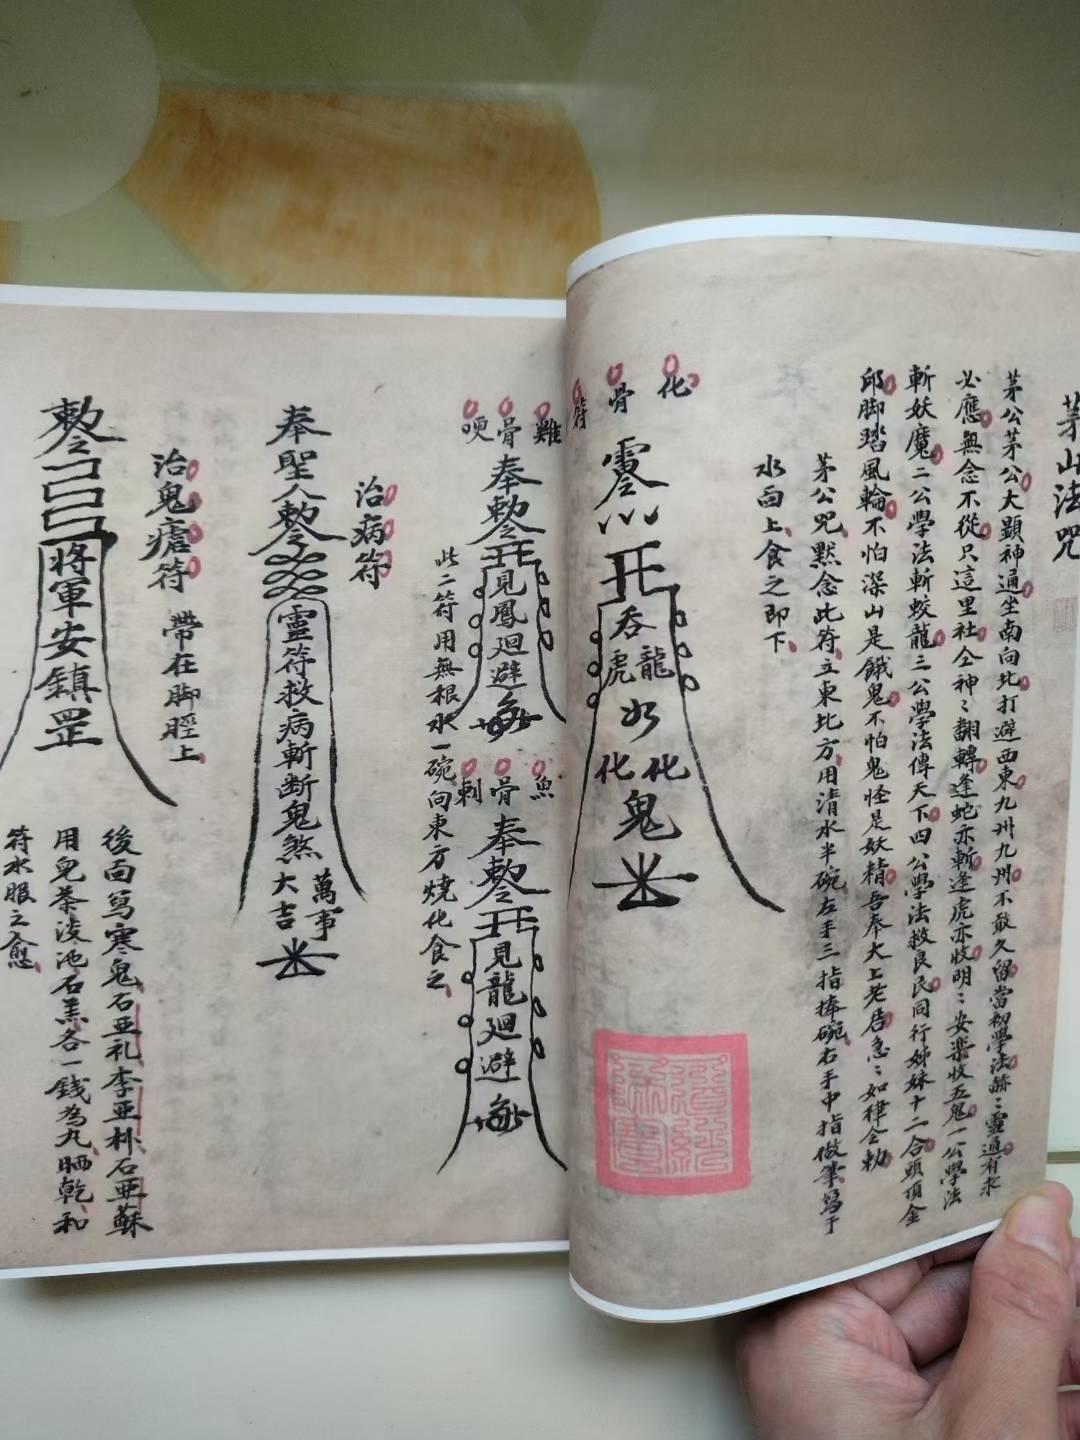 茅山法咒
茅公茅公大顯神通坐南向北打避西東九州九州不敢久留當初學法赫〻靈通有求
必應無念不從只這里社仝神〻翻轉逢蛇亦斬逢虎亦收明〻安樂收五鬼一公學法
斬妖魔二公學法斬蛟龍三公學法傳天下四公學法救良民同行姊妹十二合頭頂金
邱脚踏風輪不怕深山是餓鬼不怕鬼怪是妖精吾奉太上老君急〻如律令勅
茅公咒默念此符立東北方用清水半碗左手三指捧碗右手中指做筆寫于
水面上食之即下
化骨符
吞龍虎
化化
鬼
難骨哽
奉勅令
見鳳廻避
魚骨刺
奉勅令
見龍廻避
此二符用無根水一碗向東方燒化食之
治病符
奉聖人勅令
靈符救病斬斷鬼煞萬事大吉
治鬼瘧符
帶在脚脛上
勅令
將軍安鎮罡
後面寫寒鬼石亞礼李亞料石亞蘇
用兒茶淩池石羔各一錢為丸晒乾和
符水服之愈